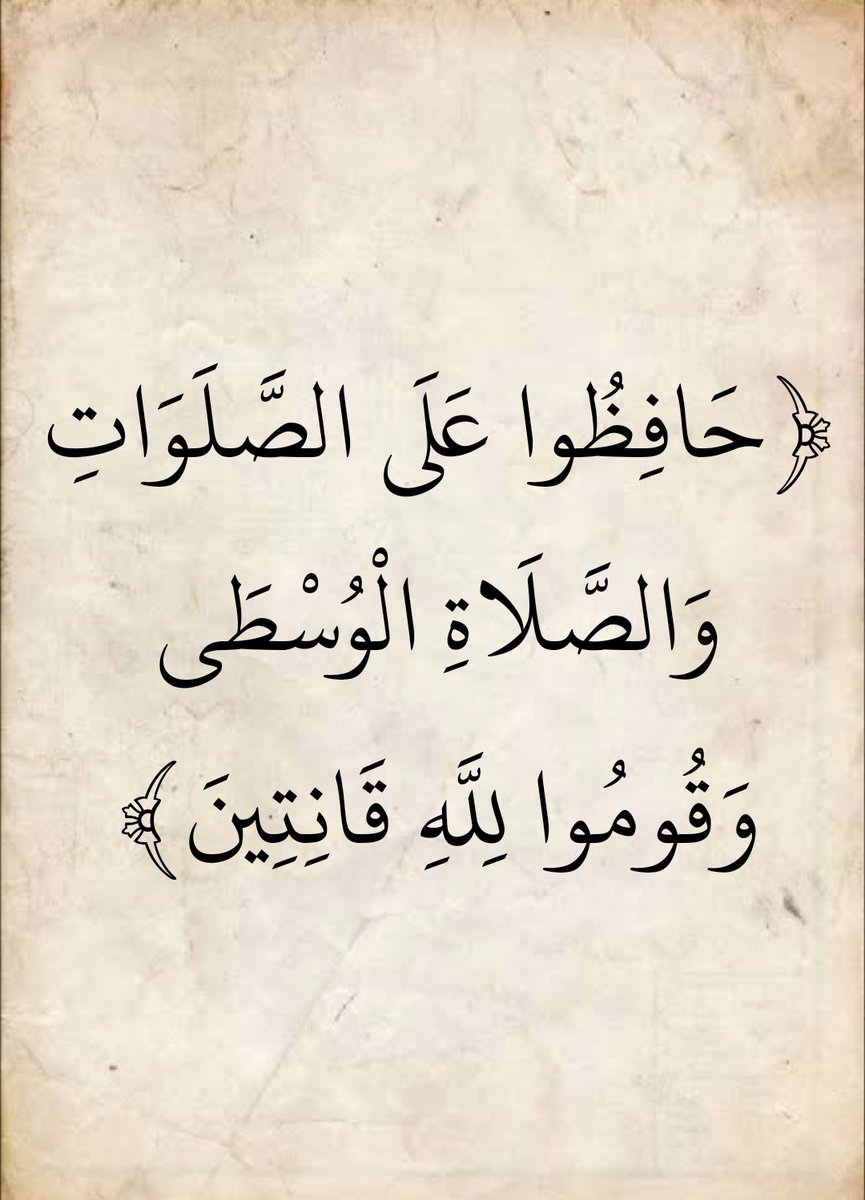 ﴿حَافِظُوا عَلَى الصَّلَوَاتِ
وَالصَّلَاةِ الْوُسْطَى
وَقُومُوا لِلَّهِ قَانِتِينَ﴾